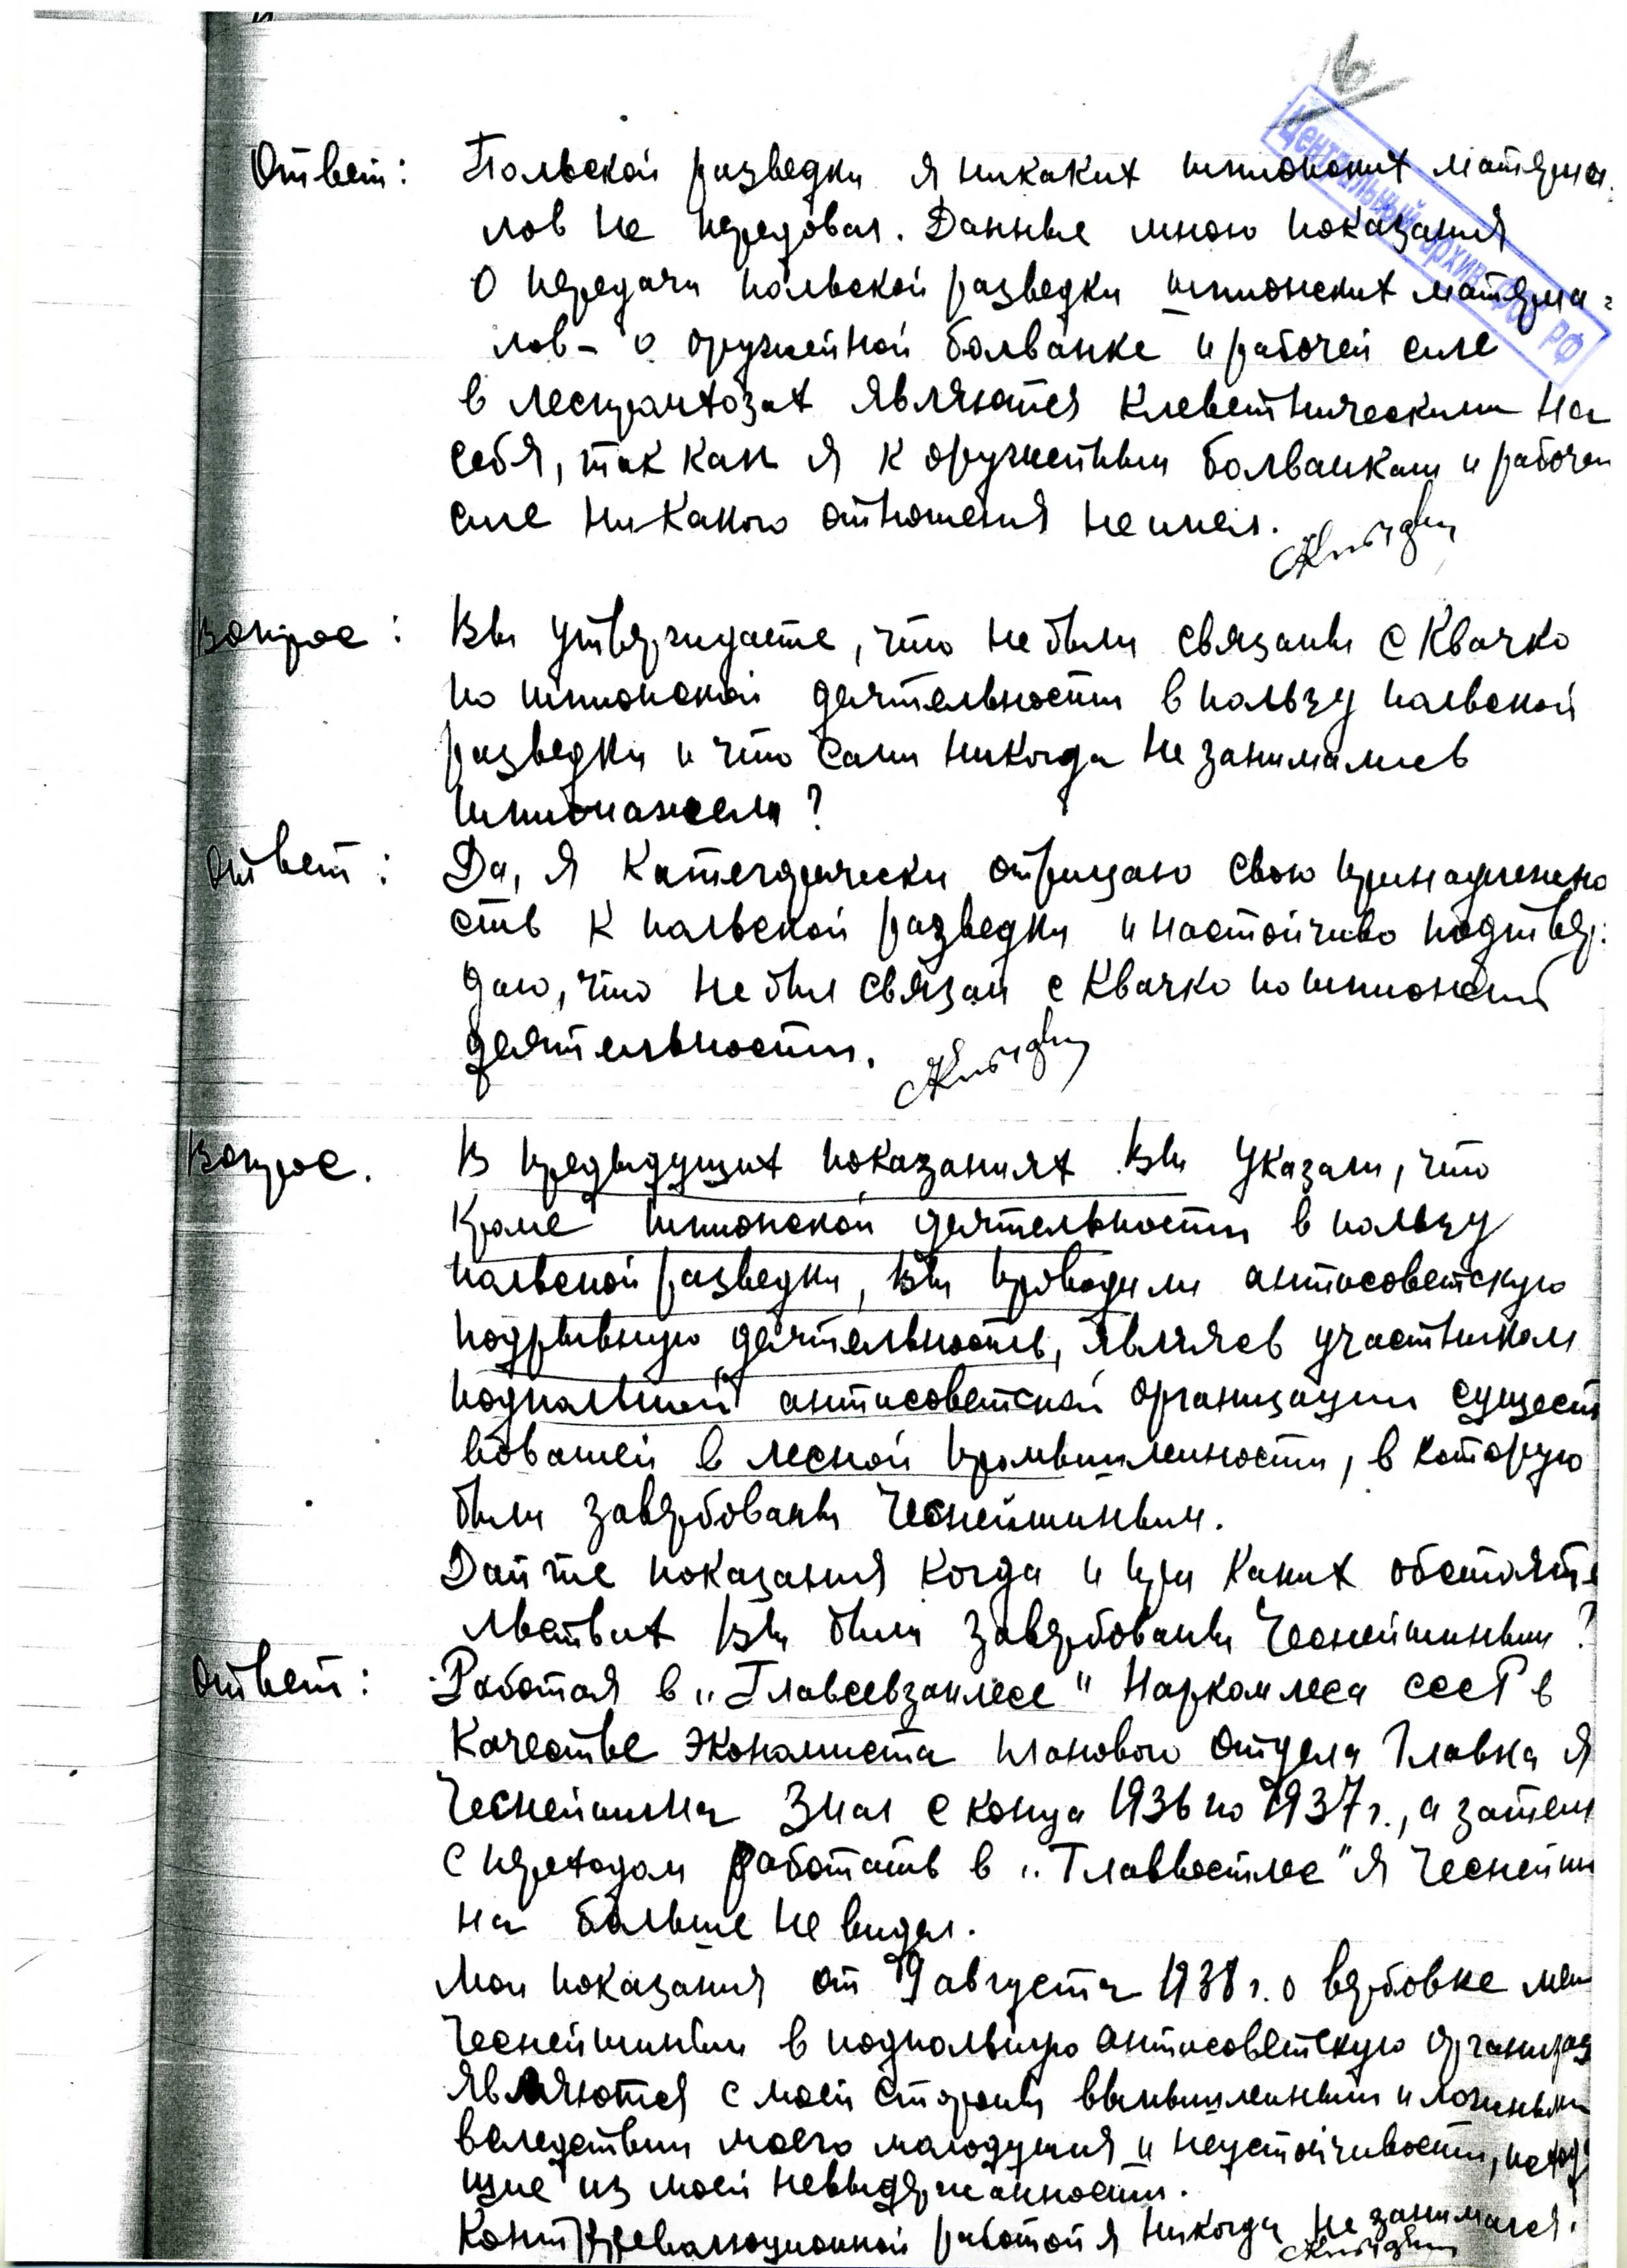 16
Центральный архив ФСБ РФ
Ответ: Польской разведки я никаких шпионских материа-
лов не передовал. Данные мною показания
о передачи польской разведки шпионских материа-
лов – о оружейной болванке и рабочей силе
в леспромхозах являются клеветническими на
себя, так как я к оружейным болванкам и рабочей
силе никакого отношения не имел.
Вопрос: Вы утверждаете, что не были связаны с Квачко
по шпионской деятельности в пользу польской
разведки и что сами никогда не занимались
шпионажем?
Ответ: Да, я категорически отрицаю свою принадлежно
сть к польской разведки и настойчиво подтвер-
даю, что не был связан с Квачко по шпионской
деятельности.
Вопрос. В предыдущих показаниях Вы указали, что
кроме шпионской деятельности в пользу
польской разведки, Вы проводили антисоветскую
подрывную деятельность, являясь участником
подпольной антисоветской организации сущест
вовавшей в лесной промышленности, в которую
были завербованы Чеснейшиным.
Дайте показания когда и при каких обстояте
льствах Вы были завербованы Чеснейшиным?
Ответ: Работая в „Главсевзаплесе" Наркомлеса СССР в
качестве экономиста планового отдела Главка я
Чеснейшина знал с конца 1936 по 1937 г., а затем
с переходом работать в „Главвостлес" я Чеснейши
на больше не видел.
Мои показания от 19 августа 1938 г. о вербовке мен
Чеснейшиным в подпольную антисоветскую организац
являются с моей стороны вымышленными и ложными
вследствии моего малодушия и неустойчивости, исходя
щие из моей невыдержанности.
Контрреволюционной работой я никогда не занимался.